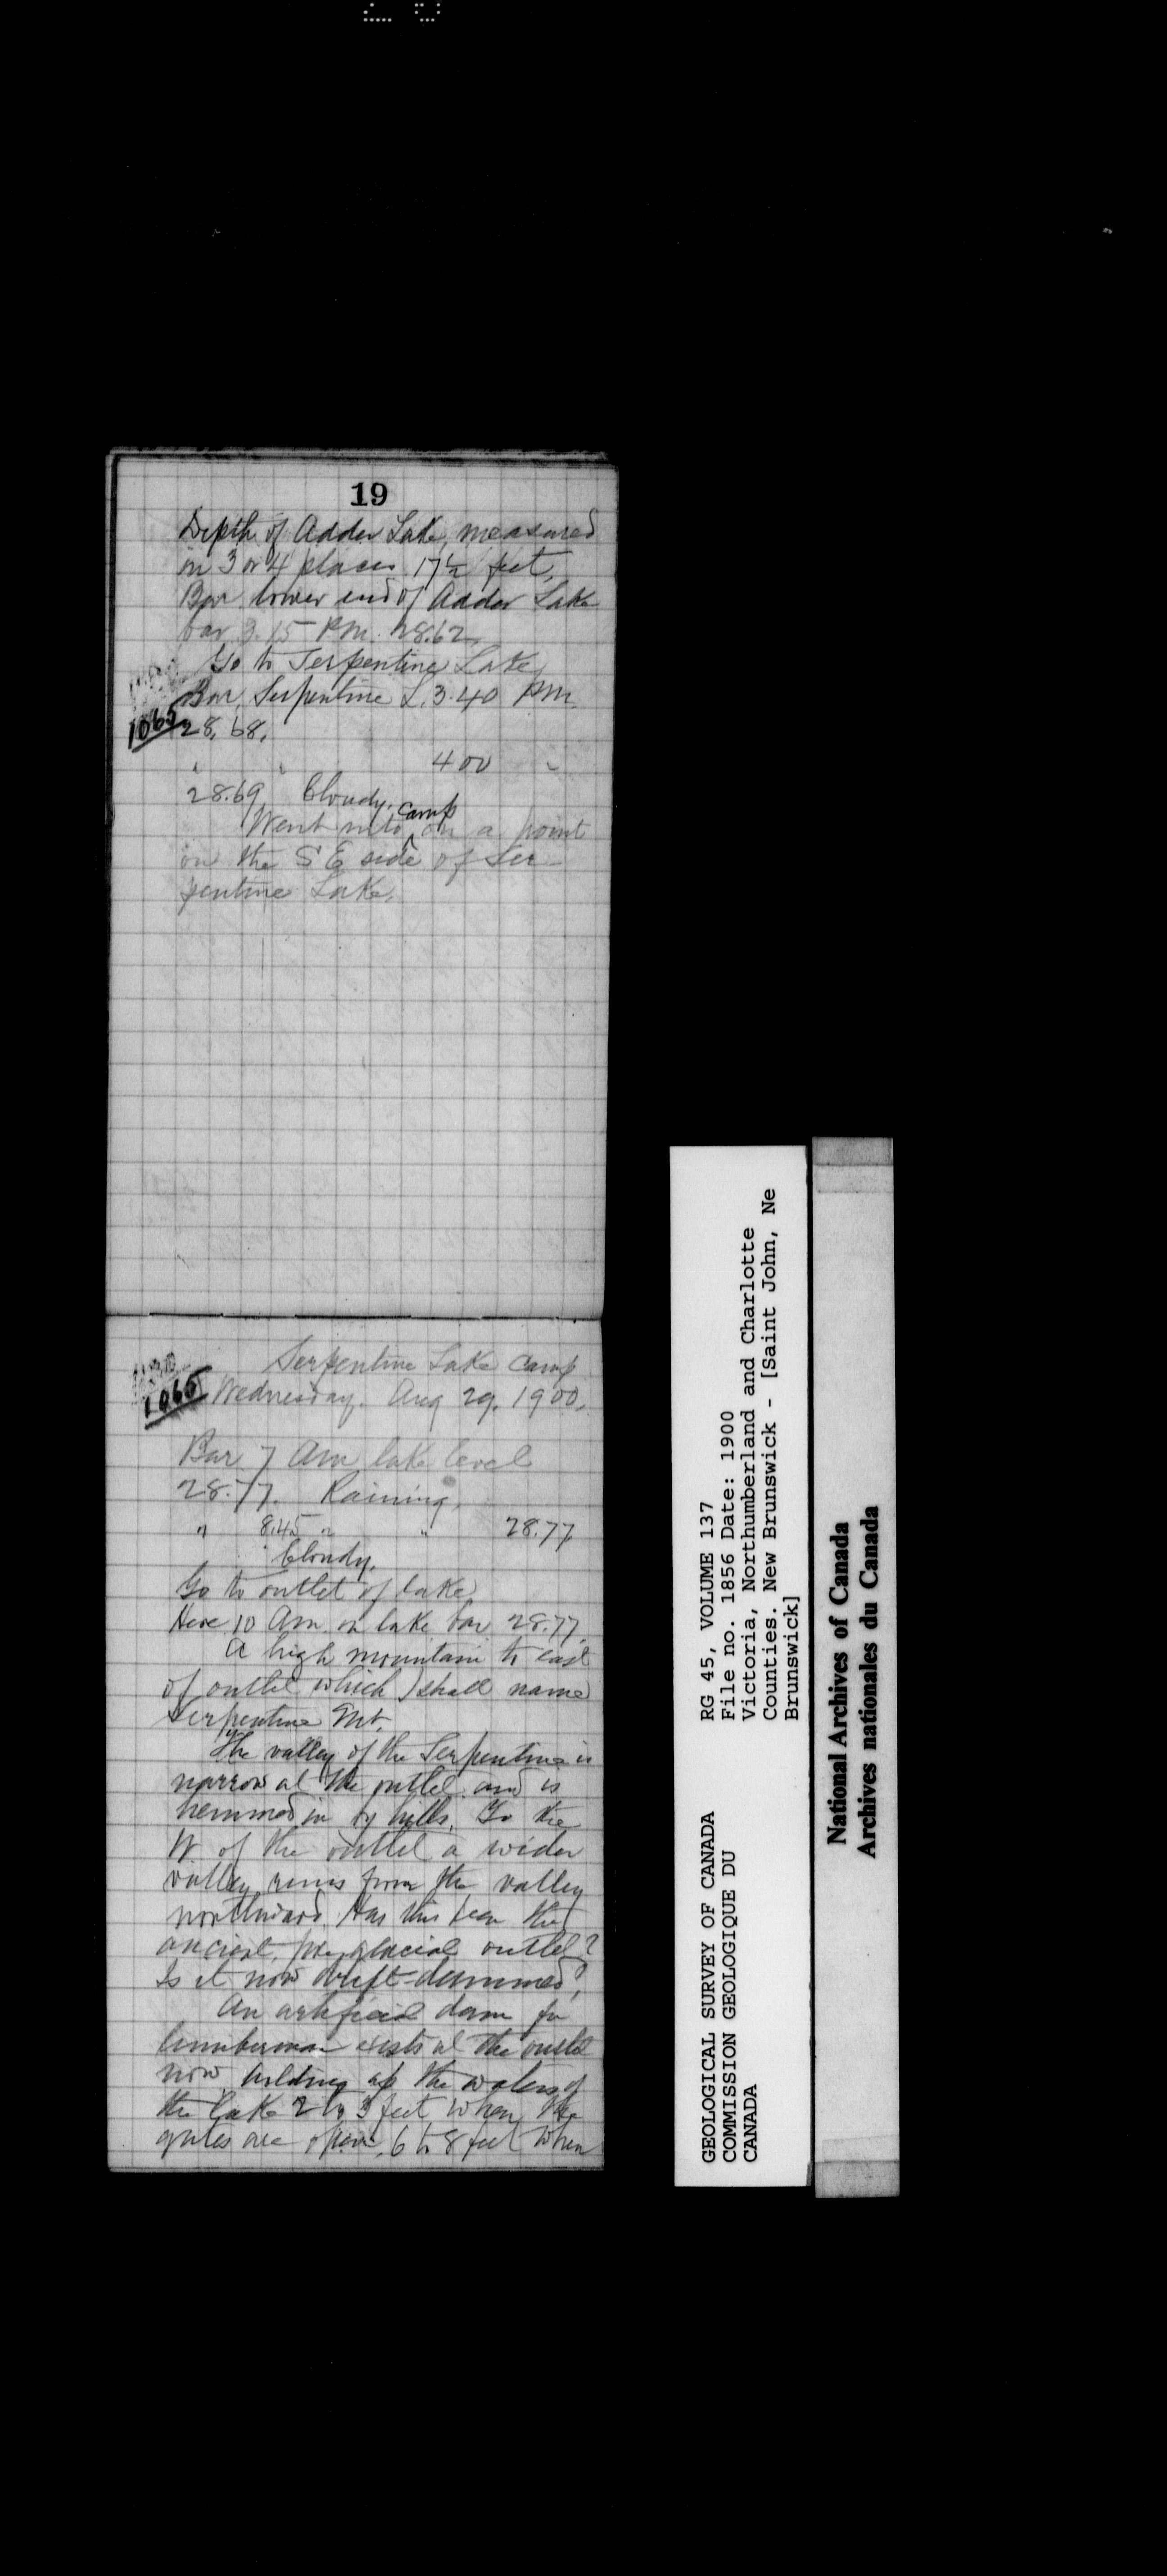 19
Depth of Adder Lake, measured
in 3 or 4 places 17½ feet.
Bar. lower end of Adder Lake
bar 3.15 PM. 28.62
Go to Serpentine Lake
Bar. Serpentine L. 3.40 PM.
1065
28.68.
" " 4 00 "
28.69 Cloudy.
Went into camp on a point
on the S E side of Ser-
pentine Lake.
Serpentine Lake Camp
1065 Wednesday. Aug 29. 1900.
Bar 7 Am lake level
28.77. Raining.
" 8.45 " " 28.77
Cloudy.
Go to outlet of lake
Here 10 Am on lake bar 28.77.
A high mountain to east
of outlet which I shall name
Serpentine Mt.
The valley of the Serpentine is
narrow at the outlet and is
hemmed in by hills. To the
W of the outlet a wider
valley runs from the valley
northward. Has this been the
ancient pre-glacial outlet?
Is it now drift-dammed?
An artificial dam for
lumberman exists at the outlet
now holding up the waters of
the lake 2 to 3 feet when the
gates are open, 6 to 8 feet when
GEOLOGICAL SURVEY OF CANADA
COMMISSION GEOLOGIQUE DU
CANADA
RG 45, VOLUME 137
File no. 1856 Date: 1900
Victoria, Northumberland and Charlotte
Counties. New Brunswick - [Saint John, Ne
Brunswick]
National Archives of Canada
Archives nationales du Canada